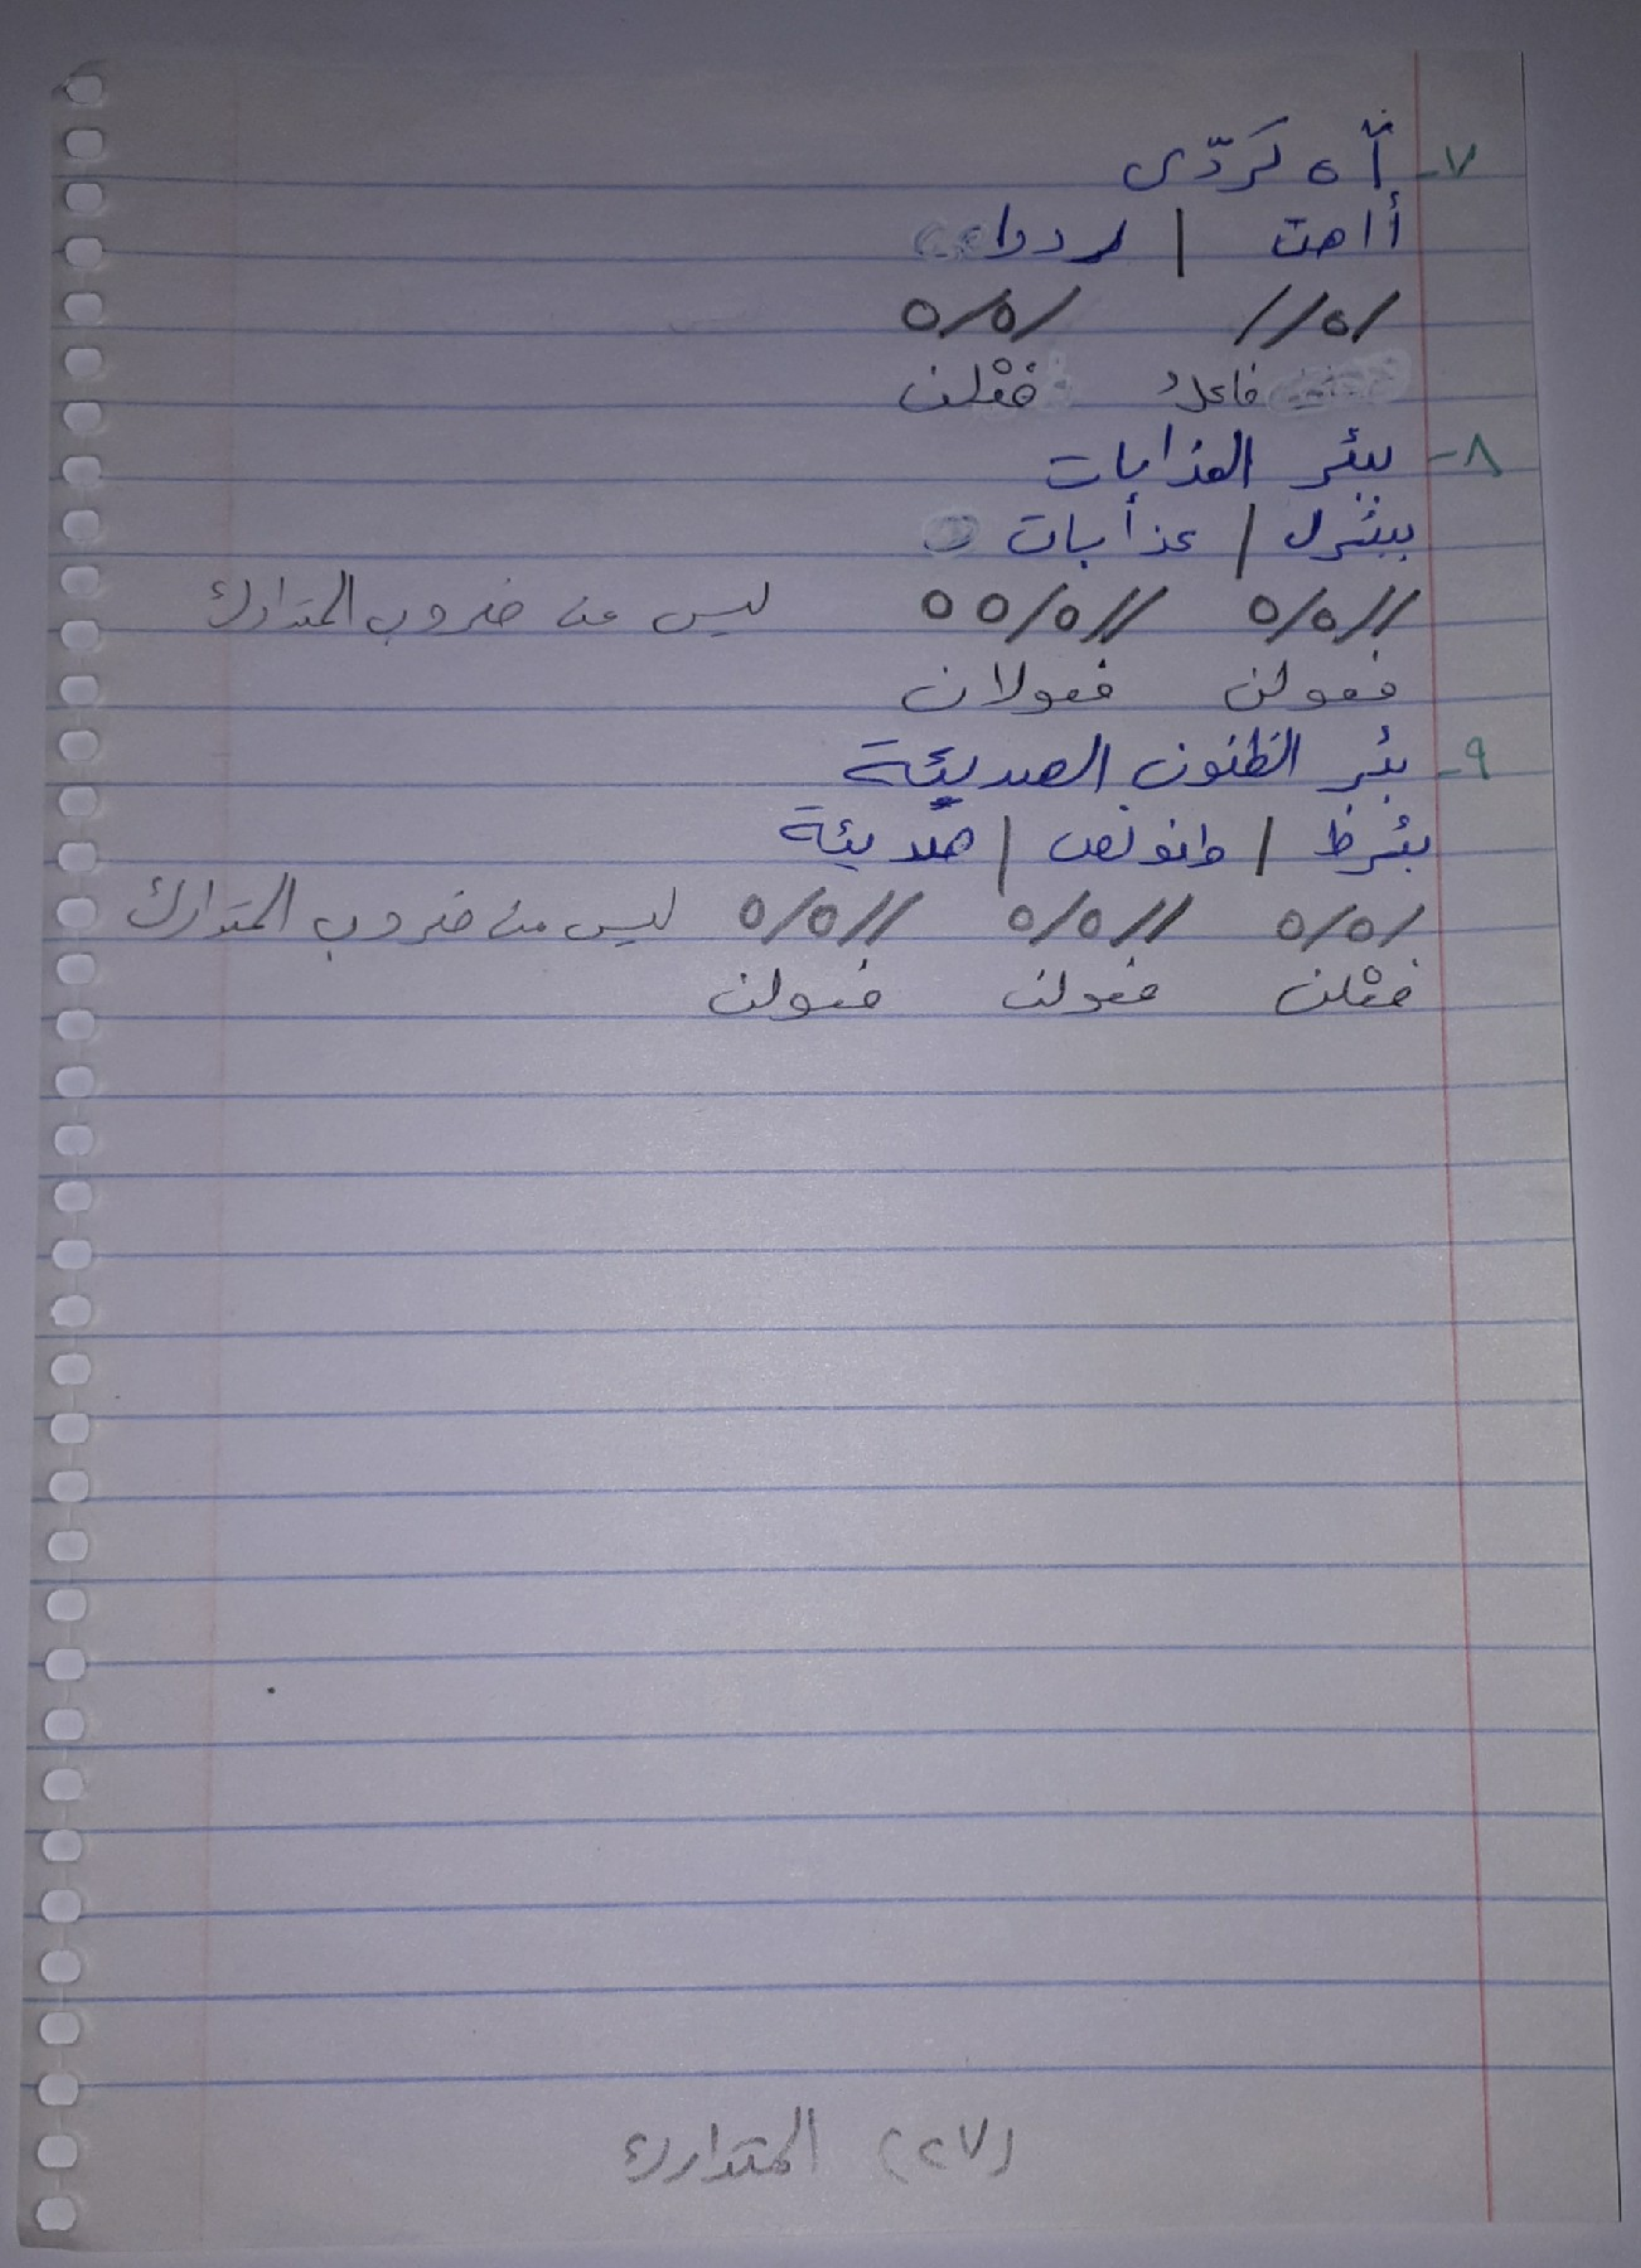 ٧- آه تردّى
أاهت | رددا
/ه// /ه/ه
فاعلُ فعْلن
٨- ببئر العذابات
ببئرل | عذابات
//ه/ه //ه/ه ه ليس من ضروب المتدارك
فعولن فعولان
٩- بئر الظنون الصديئة
بئرظ | ظنونص | صديئة
/ه/ه //ه/ه //ه/ه ليس من ضروب المتدارك
فعْلن فعولن فعولن
(٢٧) المتدارك